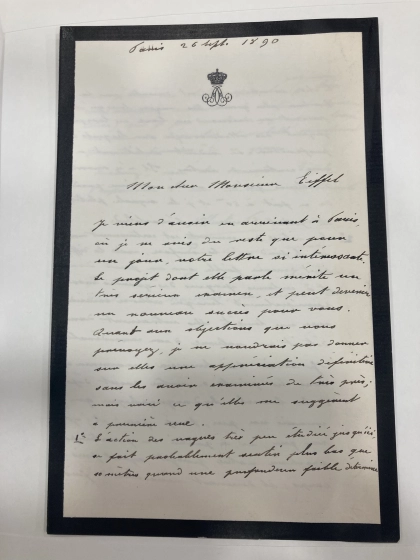 Paris 26 Sept. 1890
Mon cher Monsieur Eiffel
Je viens d'avoir en arrivant à Paris,
où je ne suis du reste que pour
un jour, votre lettre si intéressante.
Le projet dont elle parle mérite un
très sérieux examen, et peut devenir
un nouveau succès pour vous.
Quant aux objections que vous
prévoyez, je ne voudrais pas donner
sur elles une appréciation définitive
sans les avoir examinées de très près;
mais voici ce qu'elles me suggèrent
à première vue.
1° L'action des vagues très peu étudiée jusqu'ici,
se fait probablement sentir plus bas que
mètres quand une profondeur faible détermine